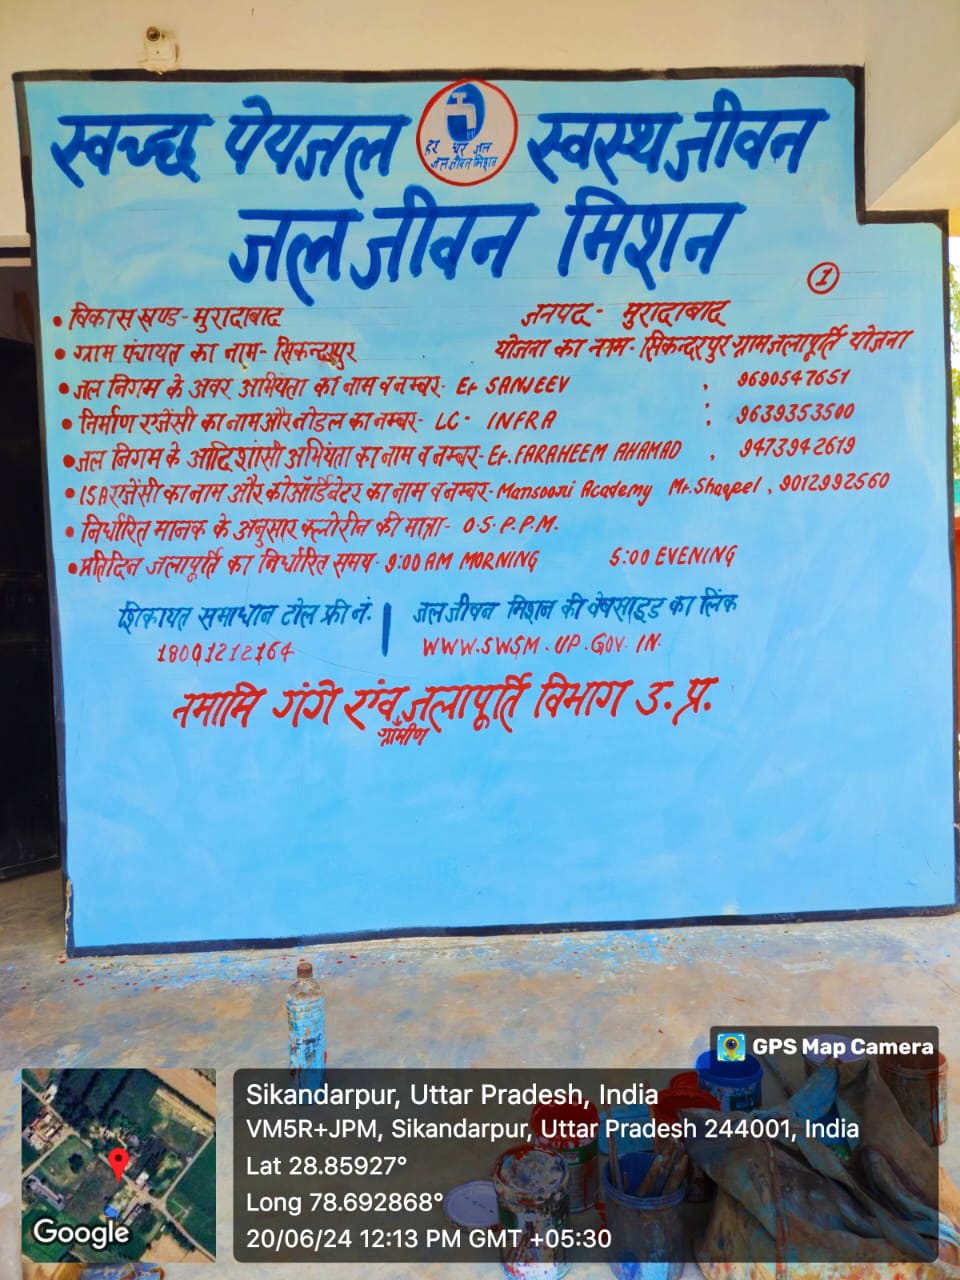 स्वच्छ पेयजल स्वस्थ जीवन
हर घर जल
जल जीवन मिशन
जल जीवन मिशन
1
• विकास खण्ड - मुरादाबाद जनपद - मुरादाबाद
• ग्राम पंचायत का नाम - सिकन्दरपुर योजना का नाम - सिकन्दरपुर ग्राम जलापूर्ति योजना
• जल निगम के अवर अभियंता का नाम व नम्बर - Er SANJEEV , 9690547651
• निर्माण एजेंसी का नाम और नोडल का नम्बर - LC - INFRA : 9639353500
• जल निगम के आदिशासी अभियंता का नाम व नम्बर - Er. FARAHEEM AHAMAD , 9473942619
• ISA एजेंसी का नाम और कोऑर्डिनेटर का नाम व नम्बर - Mansoori Academy Mr. Shaqeel , 9012992560
• निर्धारित मानक के अनुसार क्लोरीन की मात्रा - 0.5.P.P.M.
• प्रतिदिन जलापूर्ति का निर्धारित समय - 9:00 AM MORNING 5:00 EVENING
शिकायत समाधान टोल फ्री नं. | जल जीवन मिशन की वेबसाइड का लिंक
18001212164 WWW.SWSM.UP.GOV.IN.
नमामि गंगे एंव ग्रामीण जलापूर्ति विभाग उ.प्र.
GPS Map Camera
Sikandarpur, Uttar Pradesh, India
VM5R+JPM, Sikandarpur, Uttar Pradesh 244001, India
Lat 28.85927°
Long 78.692868°
20/06/24 12:13 PM GMT +05:30
Google